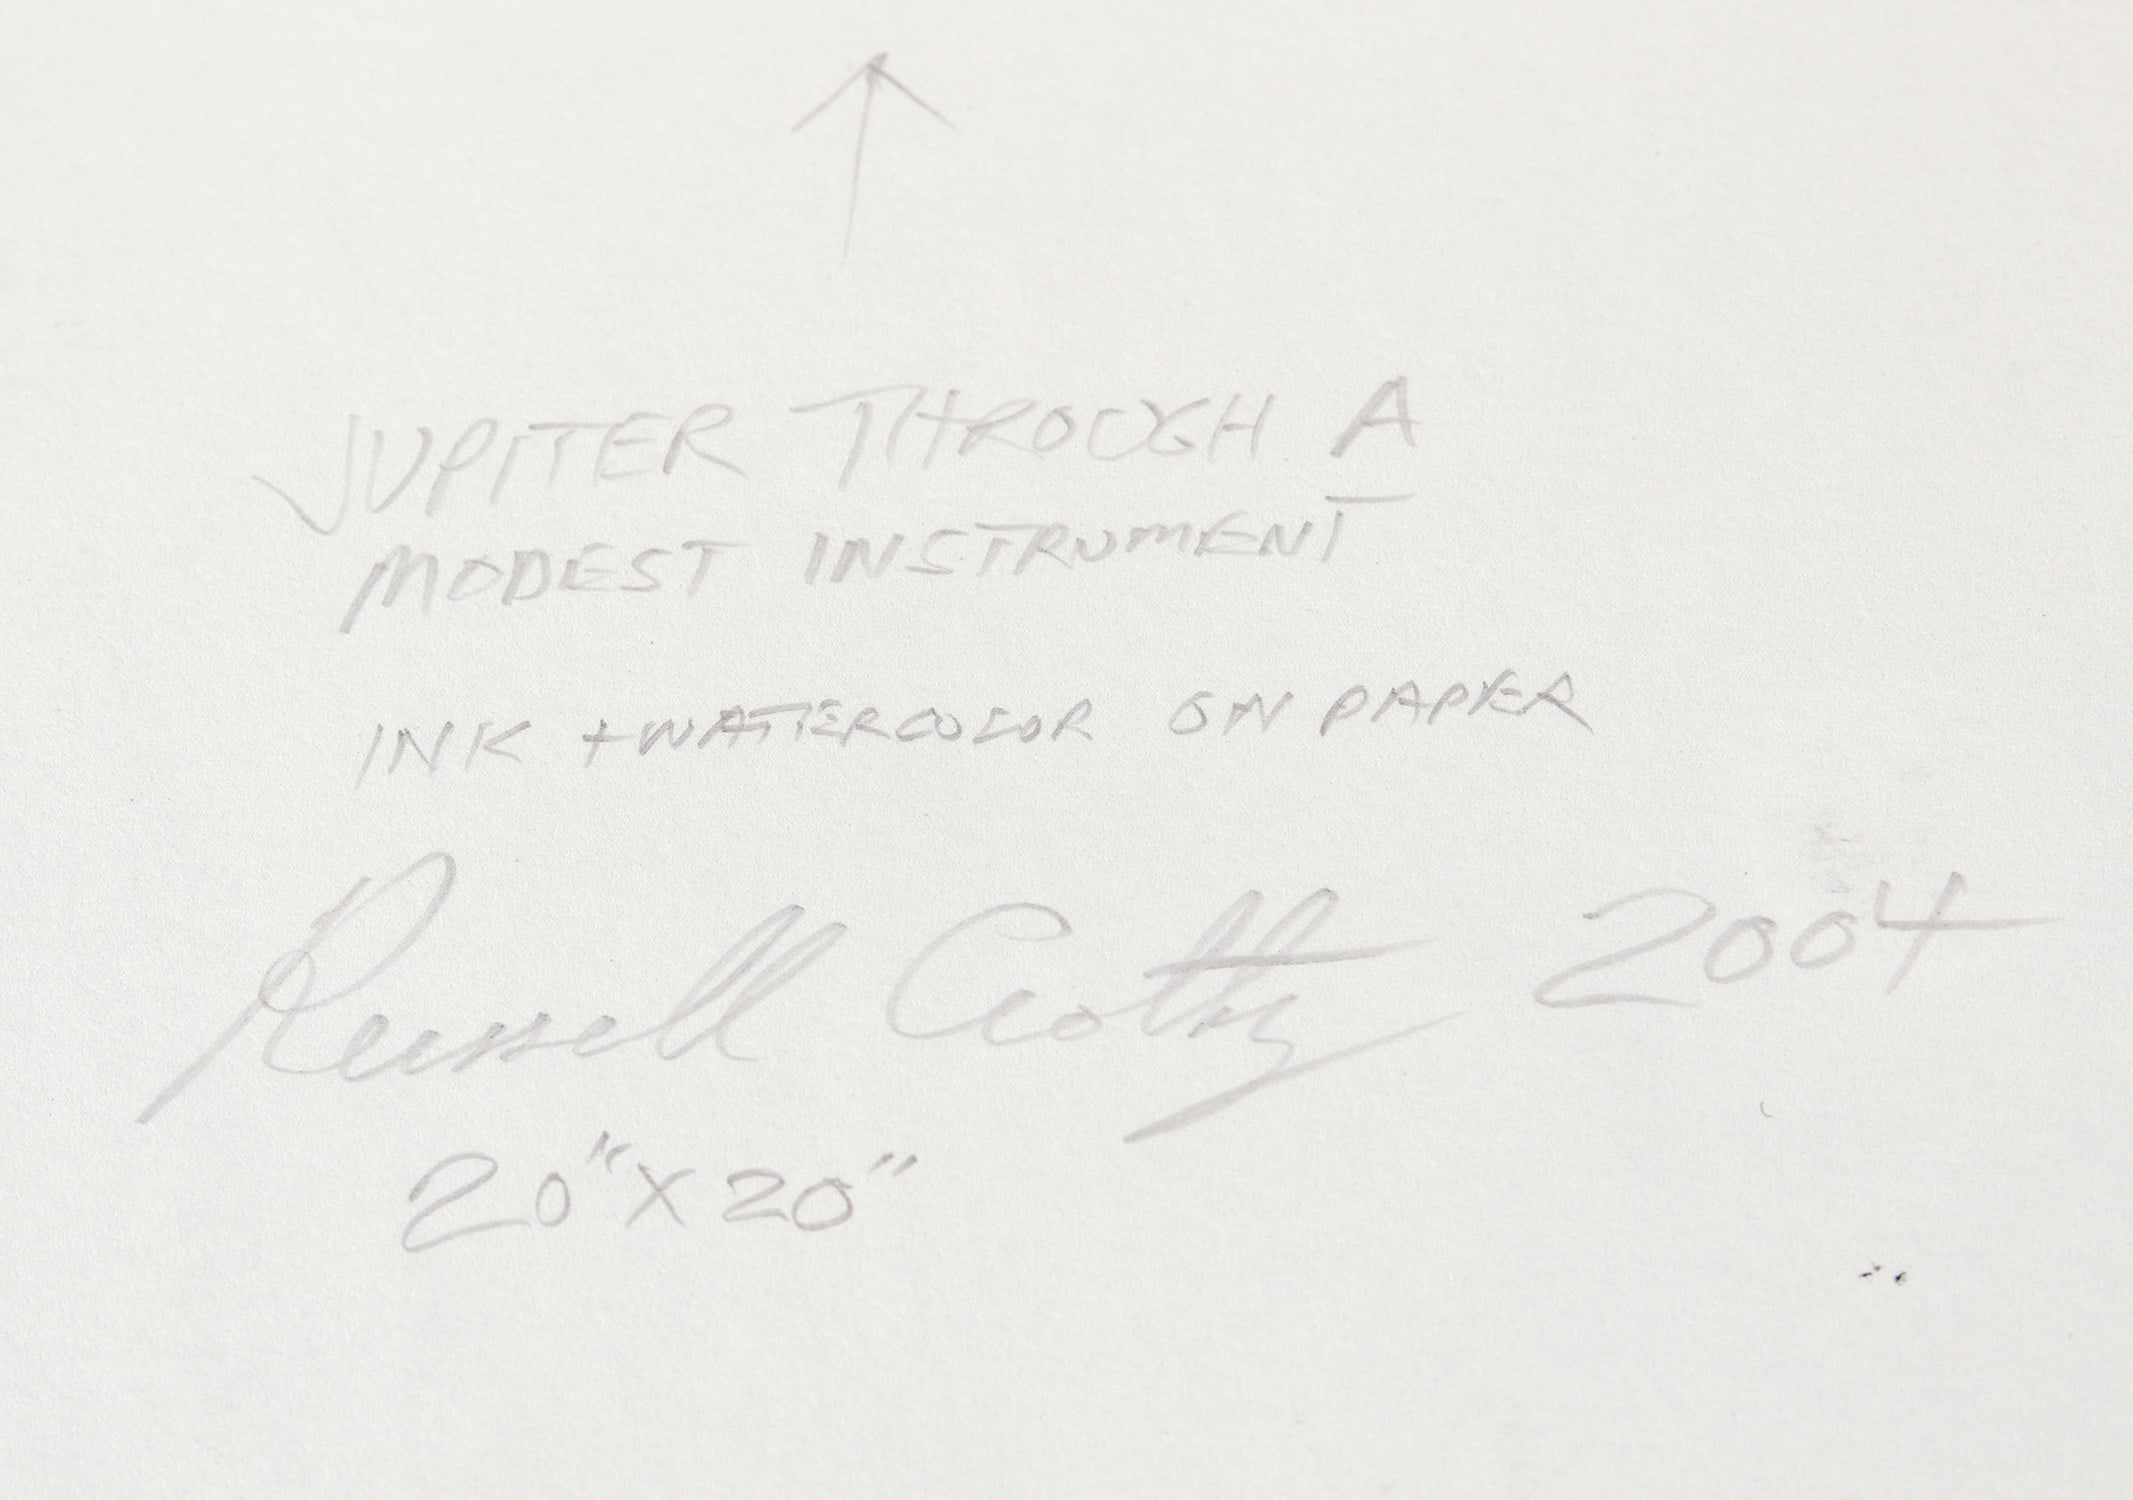 JUPITER THROUGH A
MODEST INSTRUMENT
INK + WATERCOLOR ON PAPER
Russell Crotty 2004
20" X 20"